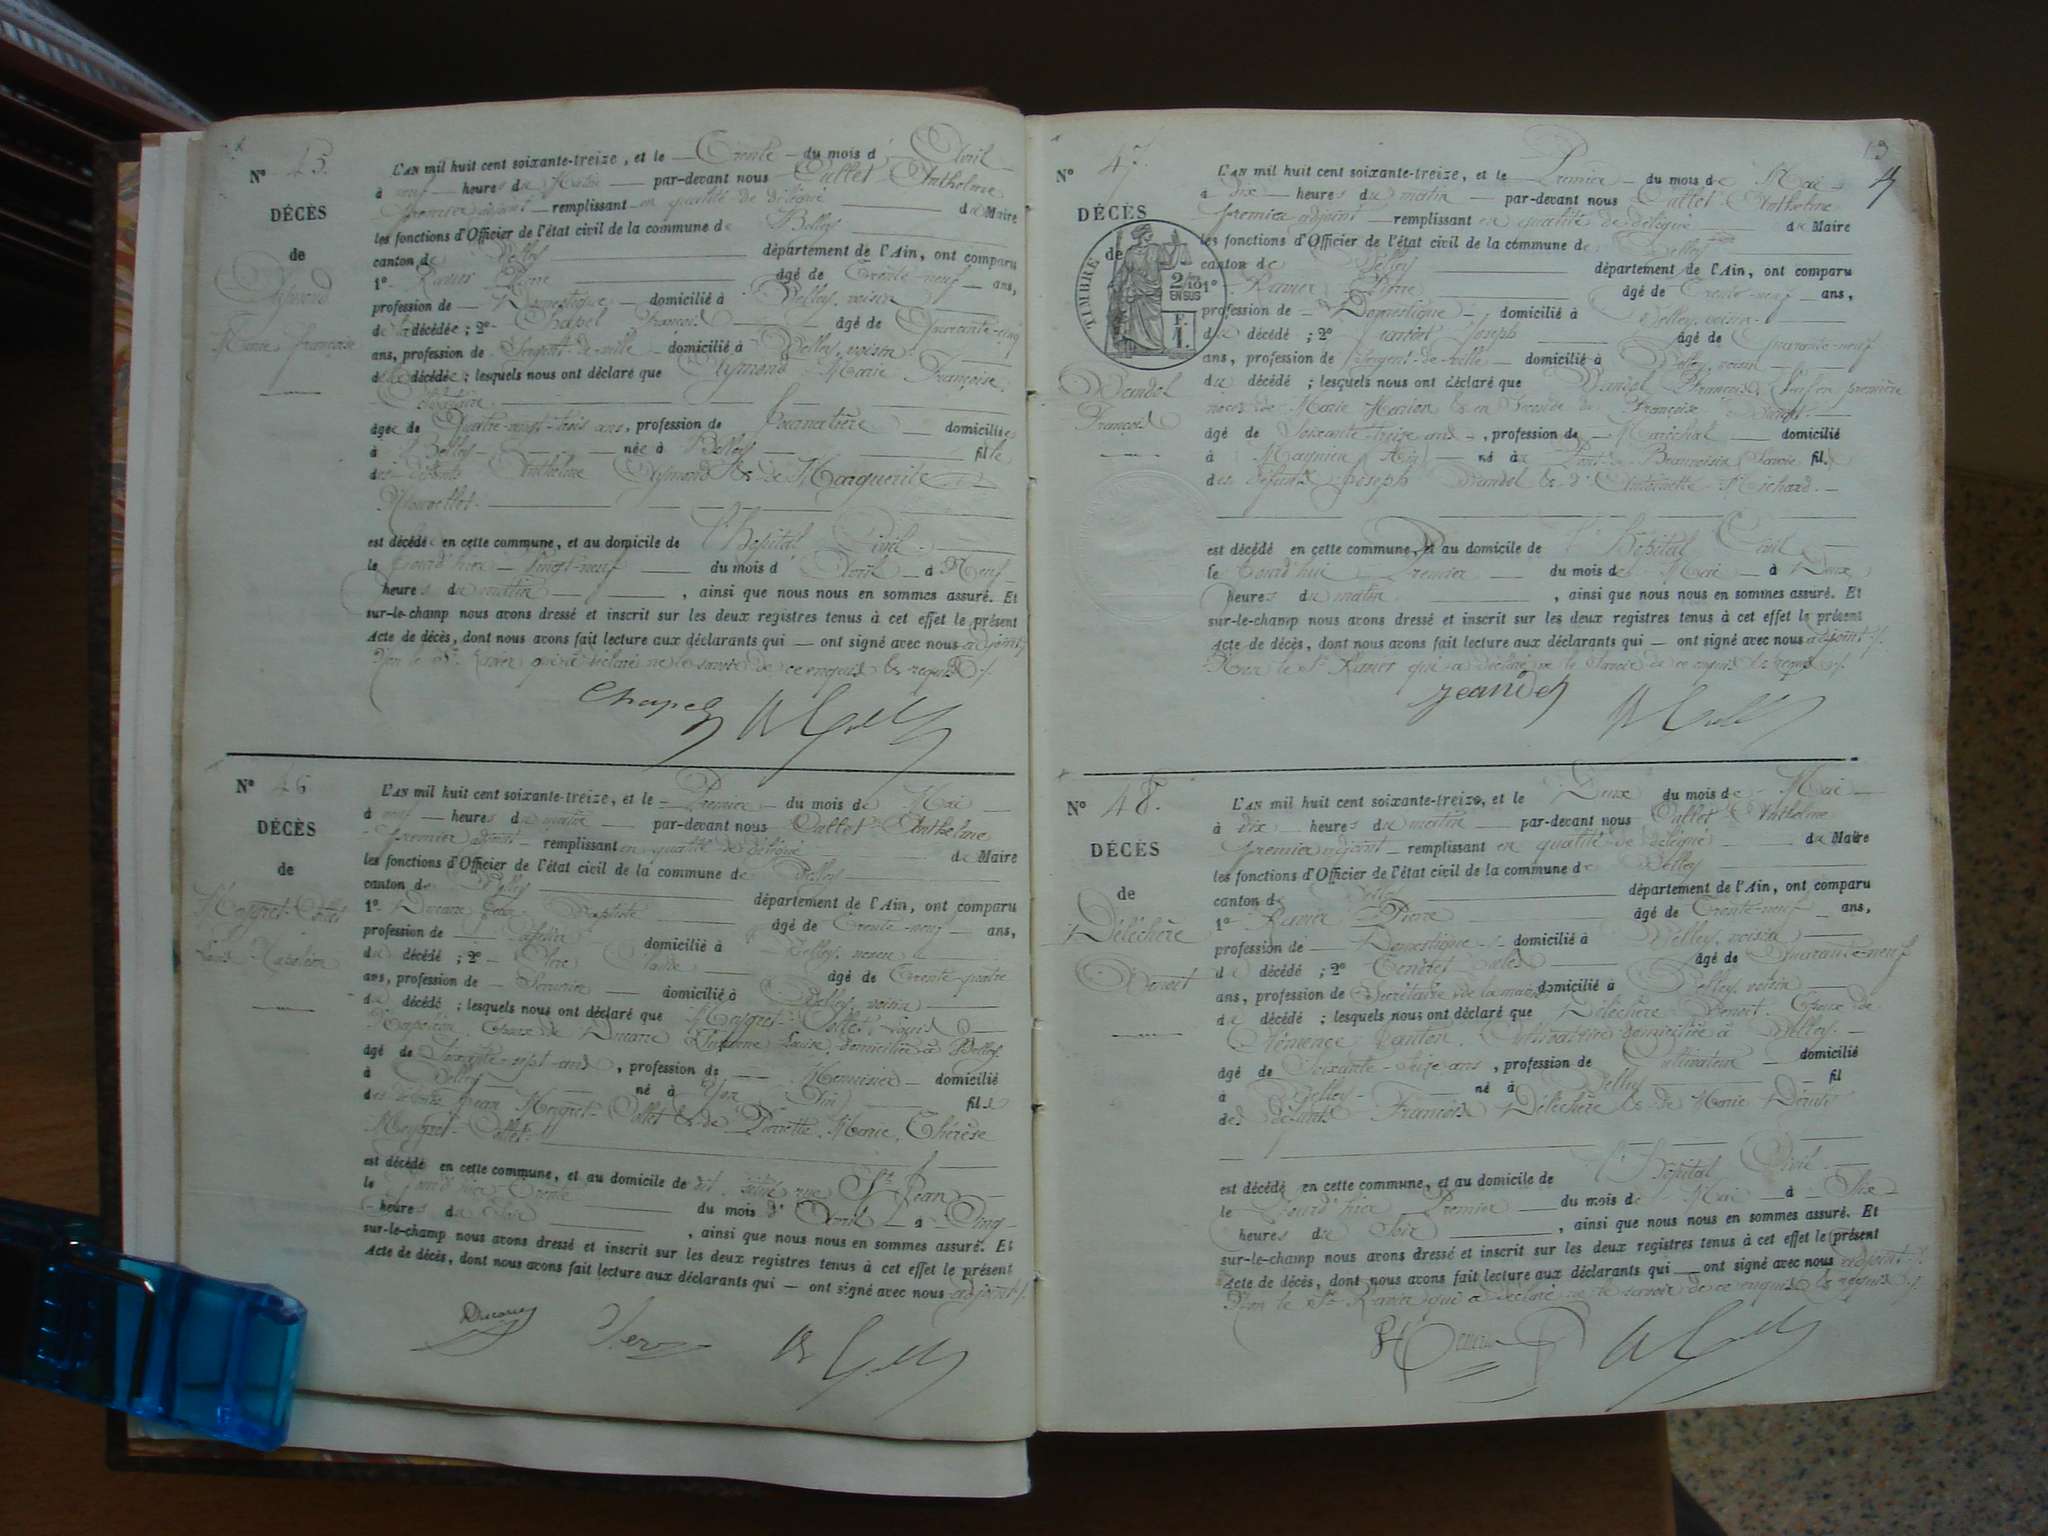 N° 45.
DÉCÈS
de
Aymond
Marie Françoise
L'AN mil huit cent soixante-treize, et le Trente du mois d'Avril
à neuf heures du Matin par-devant nous Callet Anthelme
premier adjoint remplissant en qualité de délégué du Maire
les fonctions d'Officier de l'état civil de la commune de Belley
canton de Belley département de l'Ain, ont comparu
1° Ravier Pierre âgé de Trente-neuf ans,
profession de Domestique domicilié à Belley, voisin
de la décédée ; 2° Chapel François âgé de Quarante-cinq
ans, profession de Sergent-de-ville domicilié à Belley, voisin
de la décédée ; lesquels nous ont déclaré que Aymond Marie Françoise,
Célibataire
âgée de Quatre-vingt-trois ans, profession de Journalière domiciliée
à Belley née à Belley fille
des défunts Anthelme Aymond & de Marguerite
est décédée en cette commune, et au domicile de l'hôpital Civil
le jourd'hier vingt-neuf du mois d'Avril à Neuf
heures du matin , ainsi que nous nous en sommes assuré. Et
sur-le-champ nous avons dressé et inscrit sur les deux registres tenus à cet effet le présent
Acte de décès, dont nous avons fait lecture aux déclarants qui ont signé avec nous adjoint
Non le Sr. Ravier qui a déclaré ne le savoir de ce enquis & requis
Chapel
N° 46
DÉCÈS
de
Meygret-Collet
Louis Napoléon
L'AN mil huit cent soixante-treize, et le Premier du mois de Mai
à neuf heures du matin par-devant nous Callet Anthelme
premier adjoint remplissant en qualité de délégué du Maire
les fonctions d'Officier de l'état civil de la commune de Belley
canton de Belley département de l'Ain, ont comparu
1° Ducarre Jean Baptiste âgé de Trente-neuf ans,
profession de domicilié à Belley, neveu
du décédé ; 2° Claude âgé de Trente-quatre
ans, profession de Serrurier domicilié à Belley, voisin
du décédé ; lesquels nous ont déclaré que Meygret-Collet Louis
Napoléon, Epoux de Ducarre Louise, domiciliée à Belley
âgé de Soixante-sept ans , profession de Menuisier domicilié
à Belley né à (Ain) fils
des défunts Jean Meygret-Collet & de Pierrette, Marie, Thérèse
Meygret-Collet
est décédé en cette commune, et au domicile de dit rue St. Jean
le jourd'hier Trente du mois d'Avril à Cinq
heures du soir , ainsi que nous nous en sommes assuré. Et
sur-le-champ nous avons dressé et inscrit sur les deux registres tenus à cet effet le présent
Acte de décès, dont nous avons fait lecture aux déclarants qui ont signé avec nous adjoint
Ducarre
13
N° 47.
DÉCÈS
de
TIMBRE
2/10 EN SUS
F. 1.
Dandel
François
L'AN mil huit cent soixante-treize, et le Premier du mois de Mai
à dix heures du matin par-devant nous Callet Anthelme
premier adjoint remplissant en qualité de délégué du Maire
les fonctions d'Officier de l'état civil de la commune de Belley
canton de Belley département de l'Ain, ont comparu
1° Ravier Pierre âgé de Trente-neuf ans,
profession de Domestique domicilié à Belley, voisin
du décédé ; 2° Joseph âgé de Quarante-neuf
ans, profession de Sergent-de-ville domicilié à Belley, voisin
du décédé ; lesquels nous ont déclaré que Dandel François, Veuf en première
noces de Marie & en Seconde de Françoise
âgé de Soixante-treize ans , profession de Maréchal domicilié
à (Ain) né à Pont-de-Beauvoisin Savoie fils
des défunts Joseph Dandel & d'Antoinette Richard
est décédé en cette commune, et au domicile de l'hôpital Civil
le jourd'hui Premier du mois de Mai à Deux
heures du matin , ainsi que nous nous en sommes assuré. Et
sur-le-champ nous avons dressé et inscrit sur les deux registres tenus à cet effet le présent
Acte de décès, dont nous avons fait lecture aux déclarants qui ont signé avec nous adjoint
Non le Sr. Ravier qui a déclaré ne le savoir de ce enquis & requis
N° 48.
DÉCÈS
de
Délechère
Benoit
L'AN mil huit cent soixante-treize, et le Deux du mois de Mai
à dix heures du matin par-devant nous Callet Anthelme
premier adjoint remplissant en qualité de délégué du Maire
les fonctions d'Officier de l'état civil de la commune de Belley
canton de Belley département de l'Ain, ont comparu
1° Ravier Pierre âgé de Trente-neuf ans,
profession de Domestique domicilié à Belley, voisin
du décédé ; 2° âgé de Quarante-neuf
ans, profession de Secrétaire de la mairie domicilié à Belley, voisin
du décédé ; lesquels nous ont déclaré que Délechère Benoit, Epoux de
Clémence, Cultivatrice domiciliée à Belley
âgé de Soixante-seize ans , profession de Cultivateur domicilié
à Belley né à Belley fil
des défunts François Délechère & de Marie
est décédé en cette commune, et au domicile de l'hôpital Civil
le jourd'hier Premier du mois de Mai à Six
heures du Soir , ainsi que nous nous en sommes assuré. Et
sur-le-champ nous avons dressé et inscrit sur les deux registres tenus à cet effet le présent
Acte de décès, dont nous avons fait lecture aux déclarants qui ont signé avec nous adjoint
Non le Sr. Ravier qui a déclaré ne le savoir de ce enquis & requis